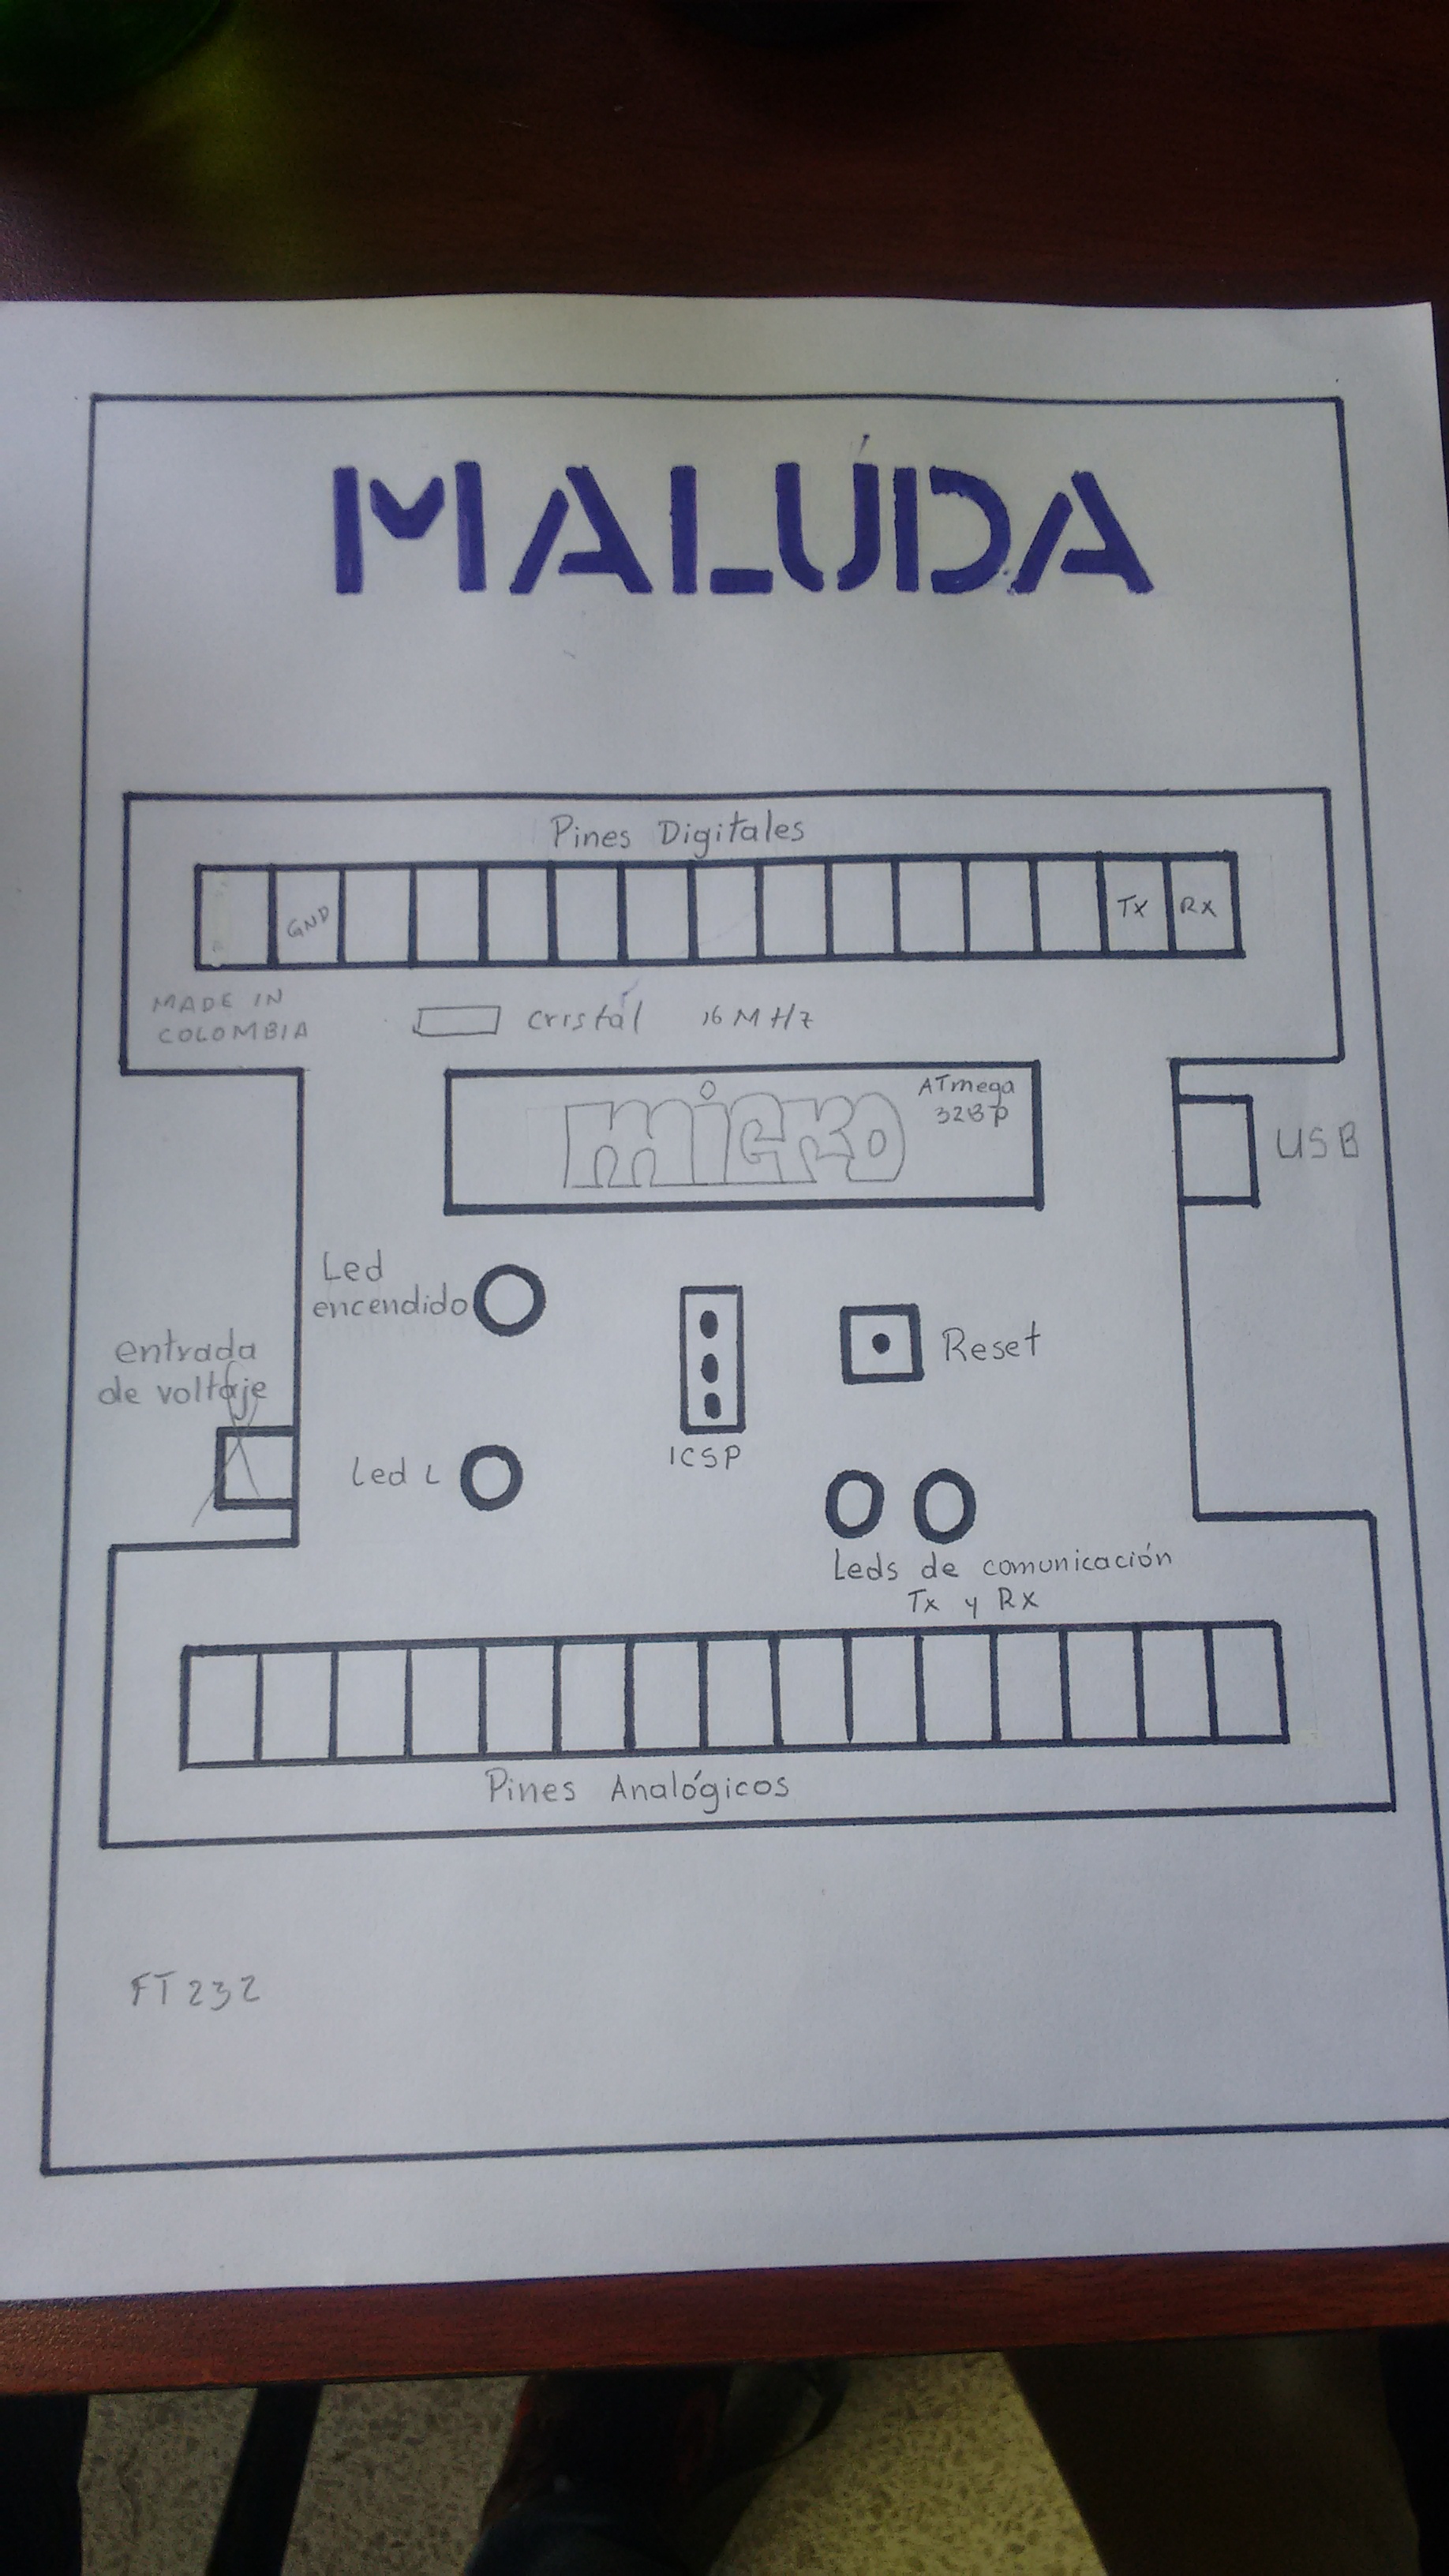 MALUDA
Pines Digitales
GND
Tx
Rx
MADE IN
COLOMBIA
cristal 16 MHz
micro
ATmega
328p
USB
Led
encendido
entrada
de voltaje
Reset
ICSP
Led L
Leds de comunicación
Tx y Rx
Pines Analógicos
FT232